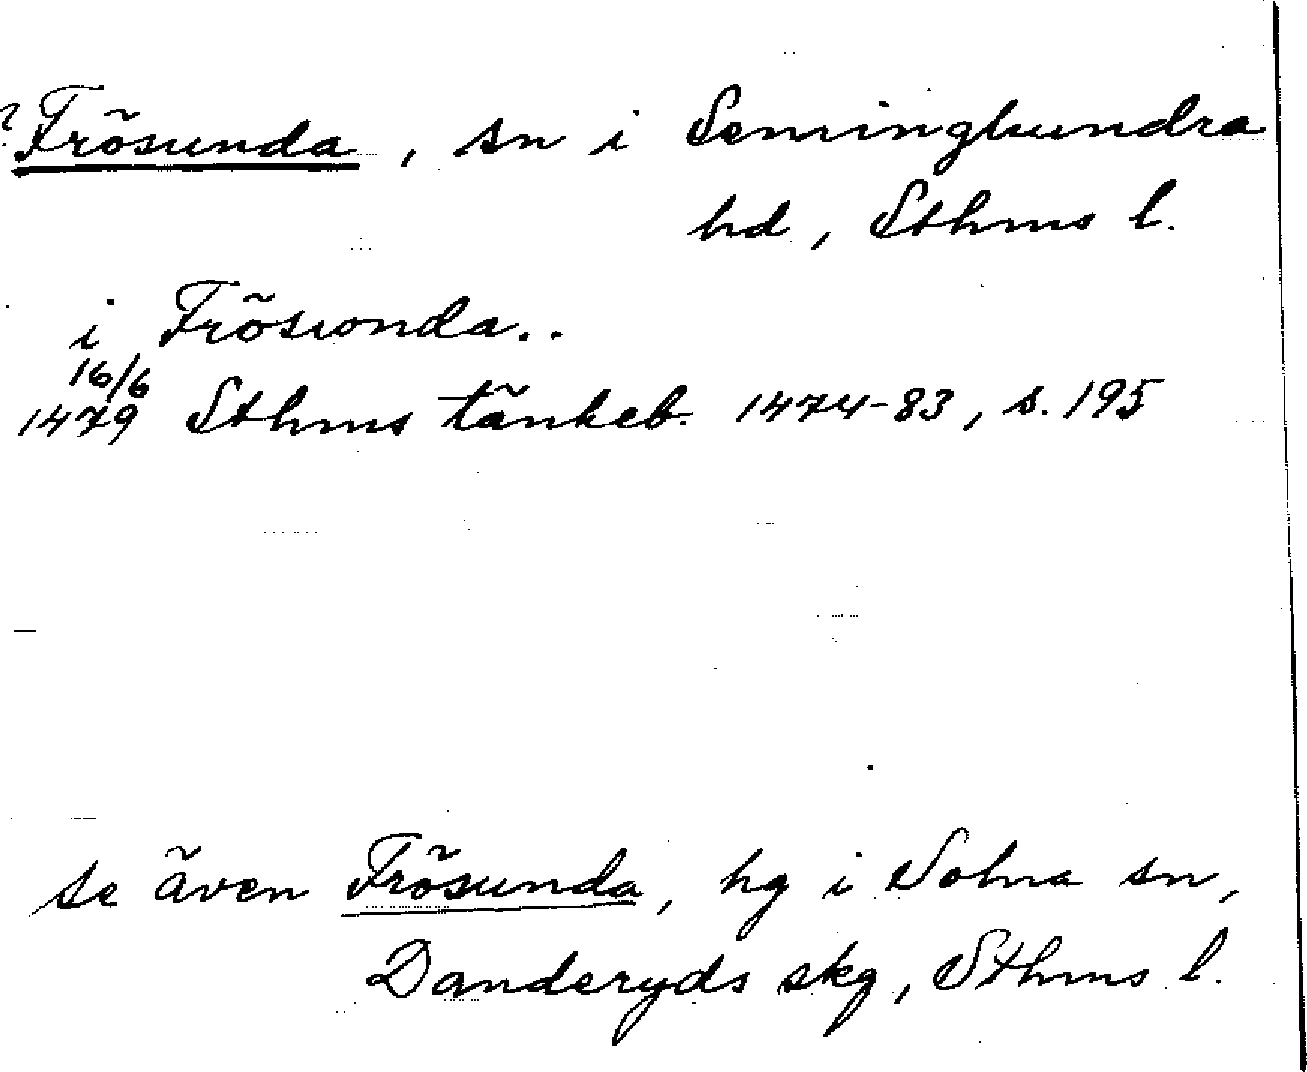 ? Frösunda, sn i Seminghundra
hd, Sthms l.
i Frösionda..
16/6
1479 Sthms tänkeb. 1474-83, s. 195
se även Frösunda, hg i Solna sn,
Danderyds skg, Sthms l.